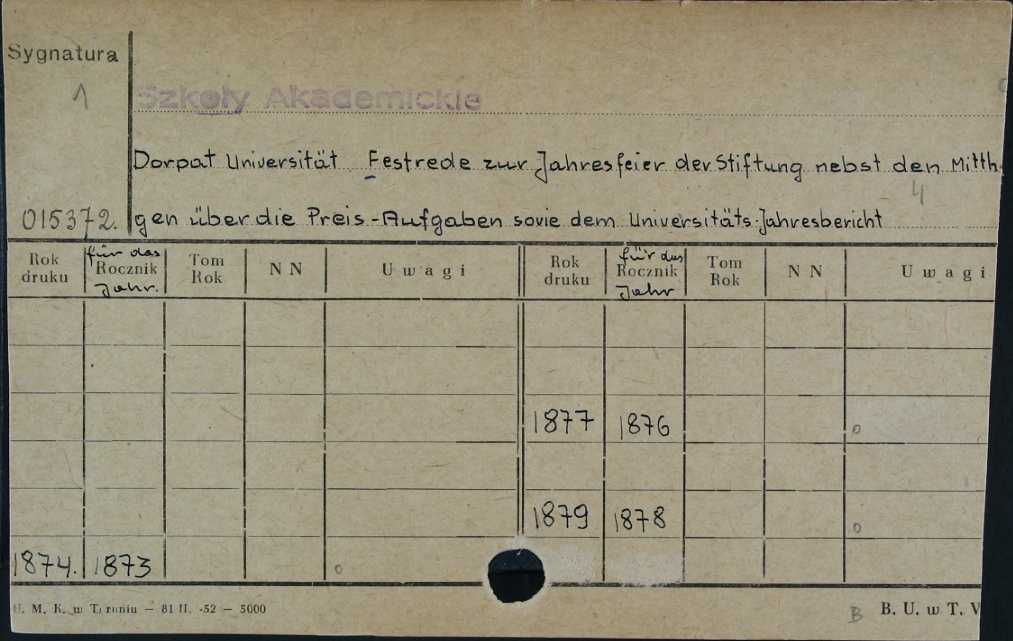 Sygnatura
1
Szkoły Akademickie
Dorpat Universität Festrede zur Jahresfeier der Stiftung nebst den Mitth-
4
015372. gen über die Preis-Aufgaben sowie dem Universitäts-Jahresbericht
Rok druku für das Rocznik Jahr. Tom Rok NN Uwagi Rok druku für das Rocznik Jahr Tom Rok NN Uwagi
1877 1876 o
1879 1878 o
1874. 1873 o
U. M. K. w Toruniu — 81 II. -52 — 5000
B B. U. w T. V